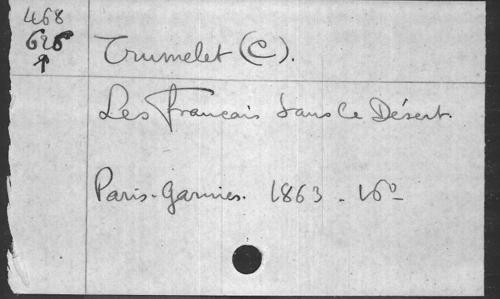 468
626
Trumelet (C).
Les Français dans le Désert.
Paris. Garnier. 1863. 16º